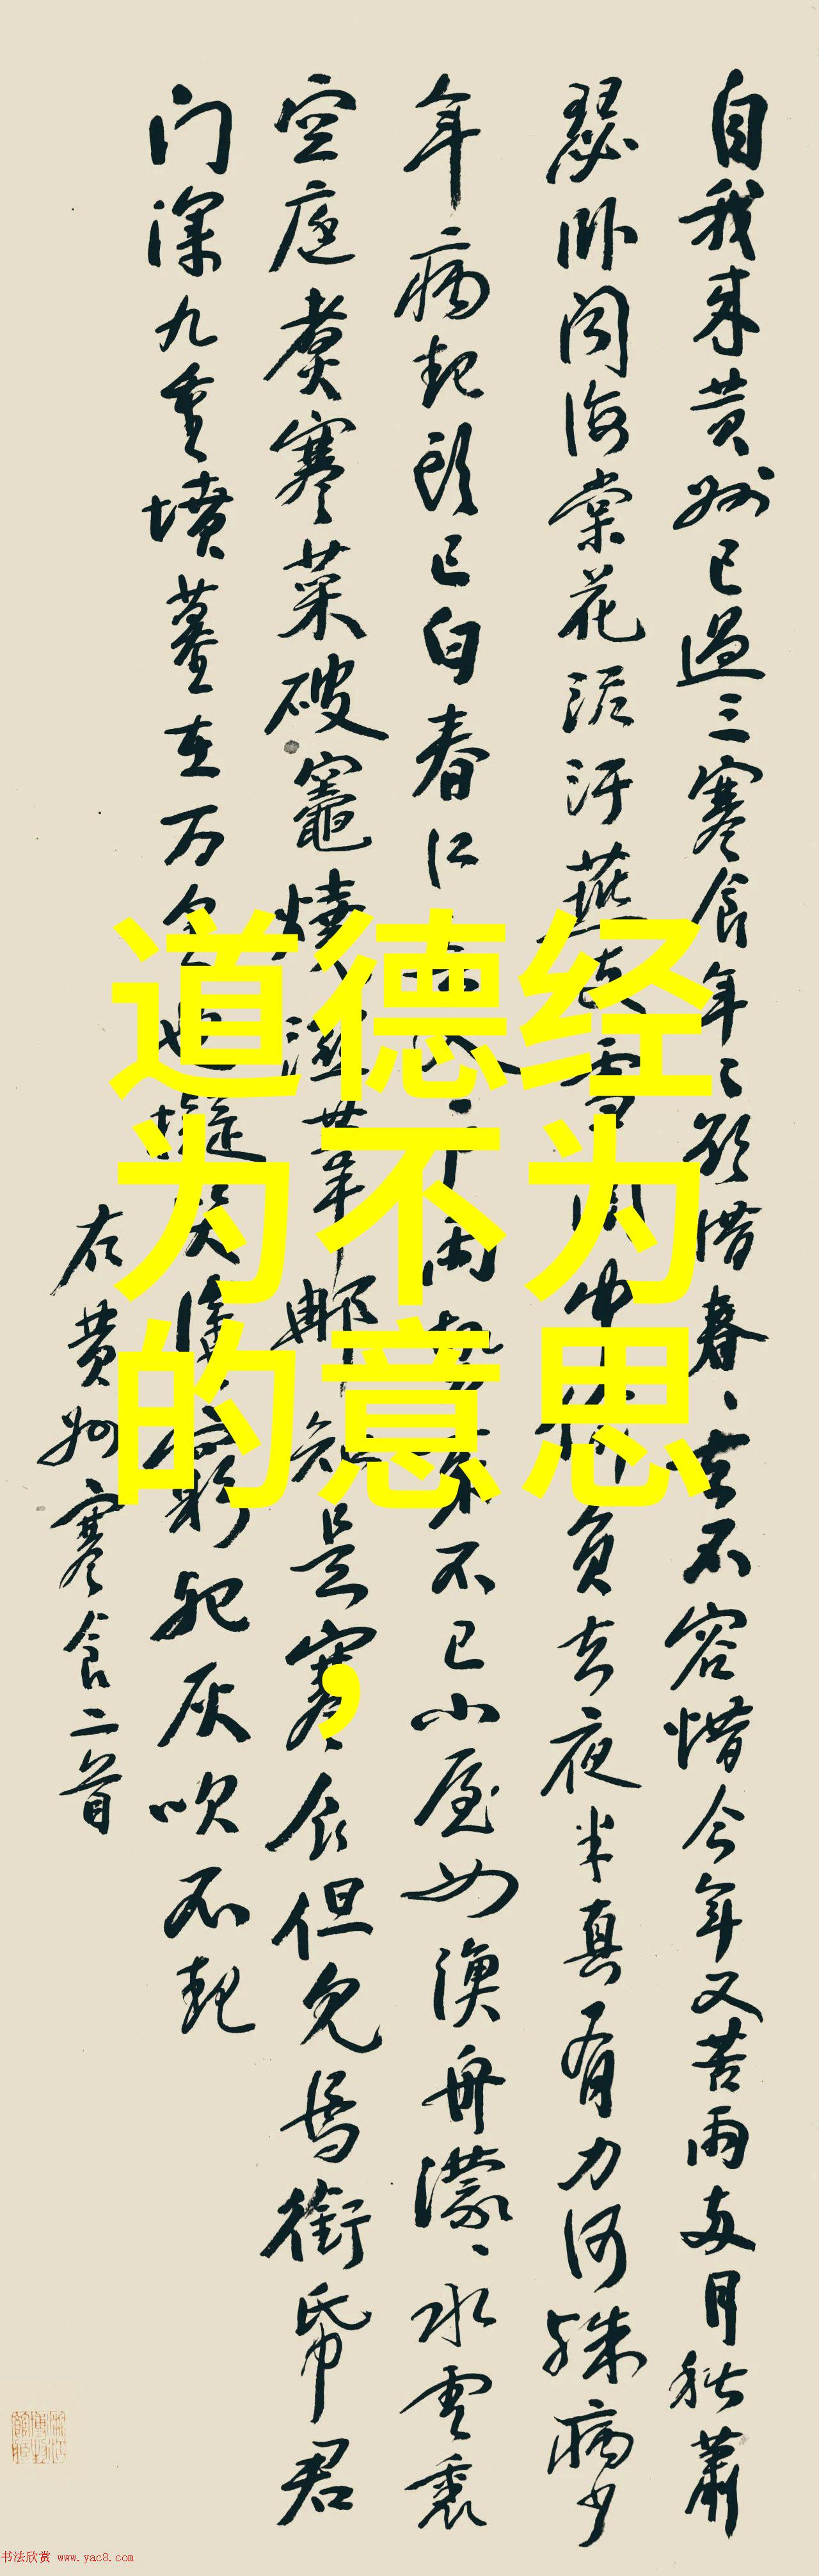 自我来黄州已過三寒食年々欲惜春、去不容惜今年又苦雨两月秋蕭
瑟卧闻海棠花泥汙燕支雪闇中偷負去夜半真有力何殊病少
年病起頭已白春江入户雨勢来不已小屋如漁舟濛、水雲裏
空庖煮寒菜破竈燒濕葦那知是寒食但見烏銜帋君
门深九重墳墓在万里也擬哭塗窮死灰吹不起
右黄州寒食二首
道德经
为不为
的意思
，
书法欣赏 www.yac8.com